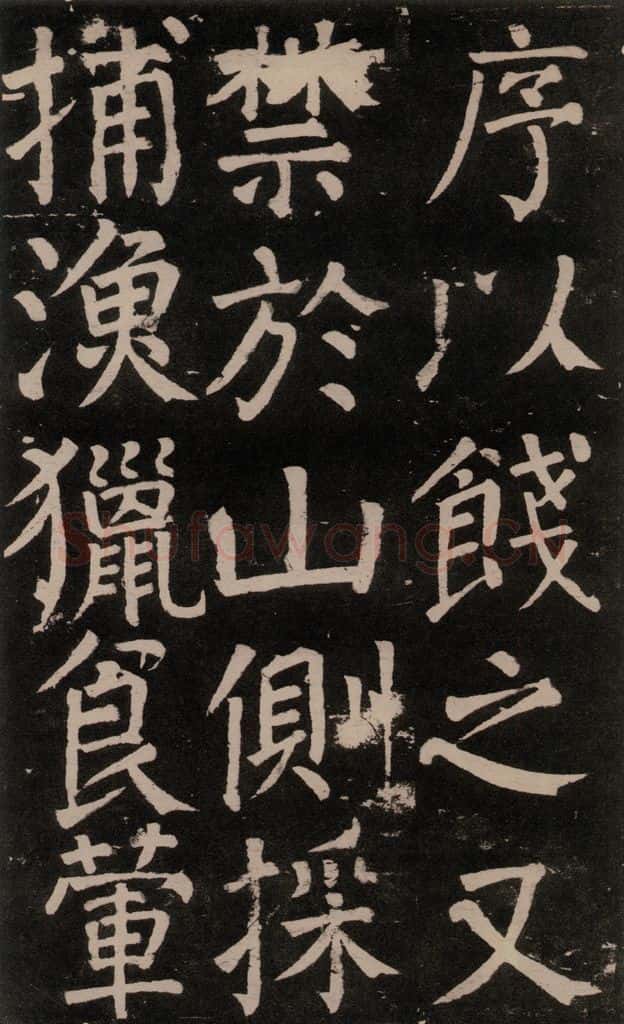 序以餞之又
禁於山側採
捕漁獵食葷
Shufawang.CN